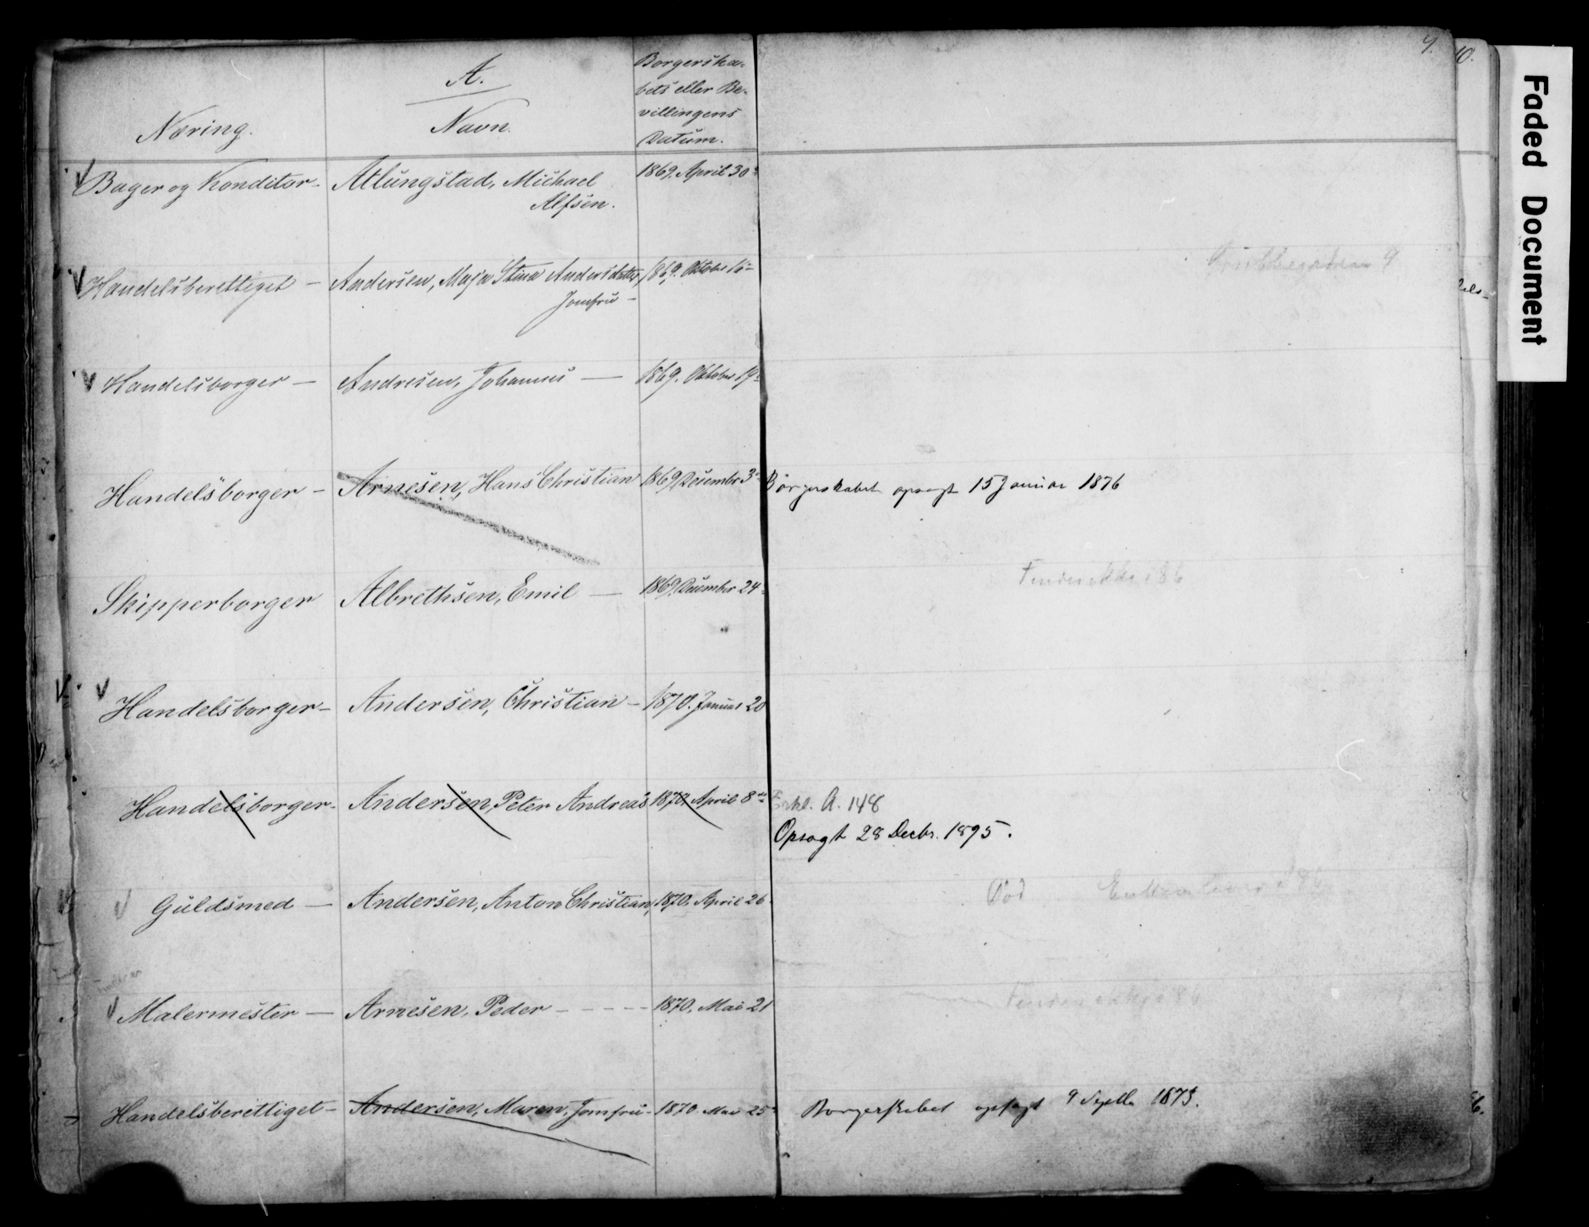 9.
10.
Faded Document
A.
Næring.
Navn.
Borgerska-
bets eller Be-
villingens
Datum.
Bager og Konditor - Atlungstad, Michael 1869. April 30
Alfsen.
Handelsberettiget - Andersen, Maja Stina Andersdatter, 1869. Oktober
Jomfru -
Handelsborger - Andresen, Johannes - 1869. Oktober 19
Handelsborger - Arnesen, Hans Christian 1869 December 3 Borgerskabet opsagt 15 Januar 1876
Skipperborger Albrethsen, Emil - 1869. December 24
Handelsborger - Andersen, Christian - 1870. Januar 20
Handelsborger - Andersen, Peter Andreas 1870. April 8 A. 148
Opsagt 28 Decbr. 1895.
Guldsmed - Andersen, Anton Christian, 1870. April 26 Død
Malermester - Arnesen, Peder - - - - 1870. Mai 21
Handelsberettiget - Andersen, Maren, Jomfru - 1870 Mai 25 Borgerskabet opsagt 9 1873.